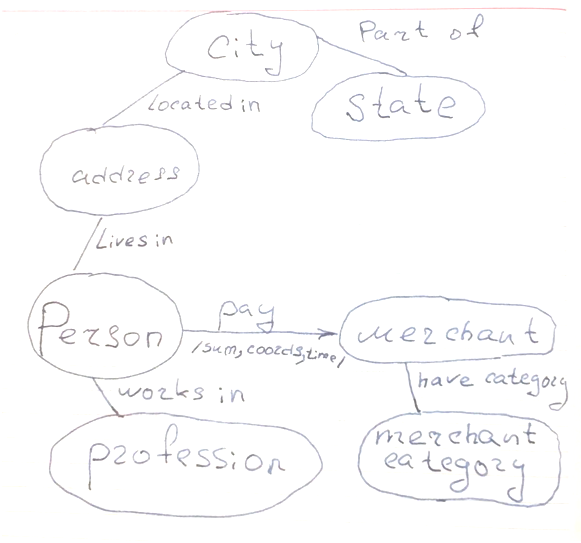 City
Part of
State
Located in
address
Lives in
Person
pay
/sum, coords, time/
merchant
works in
have category
profession
merchant
category